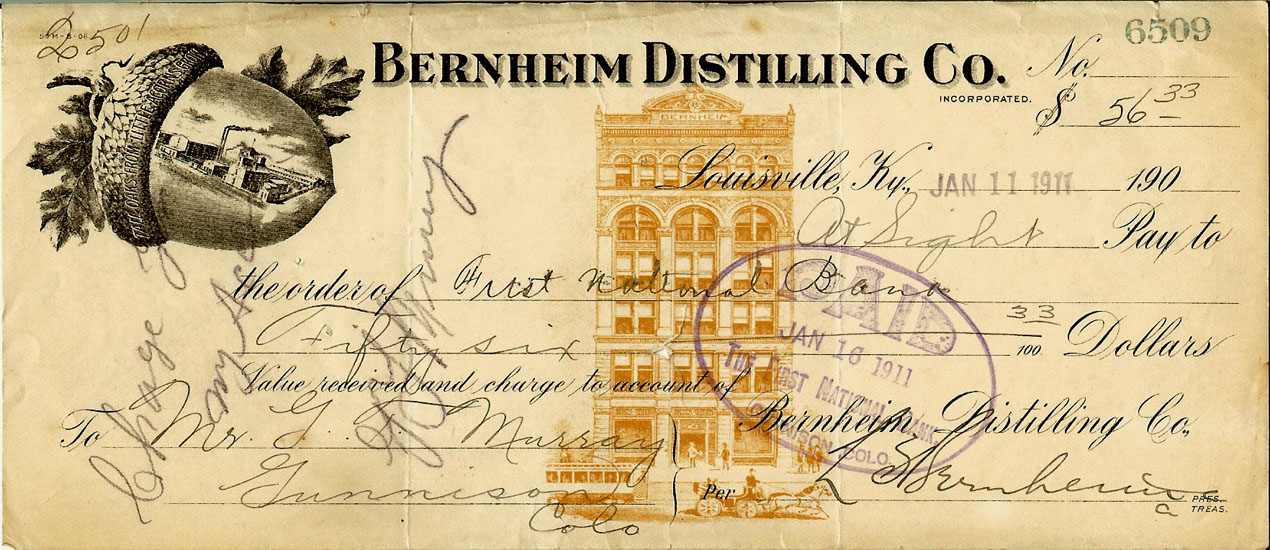 2501
6509
BERNHEIM DISTILLING CO.
INCORPORATED.
No.
$ 56 33
TALL OAKS FROM LITTLE ACORNS GROW
BERNHEIM
Louisville, Ky., JAN 11 1911 190
At Sight Pay to
the order of First National Bank
Fifty six 33/100 Dollars
Value received and charge to account of
To Mr. G. T. Murray
Gunnison
Colo
Bernheim Distilling Co.,
Per Bernheim
PRES.
TREAS.
PAID
JAN 16 1911
THE FIRST NATIONAL BANK
COLO.
Charge
my Acc
Murray